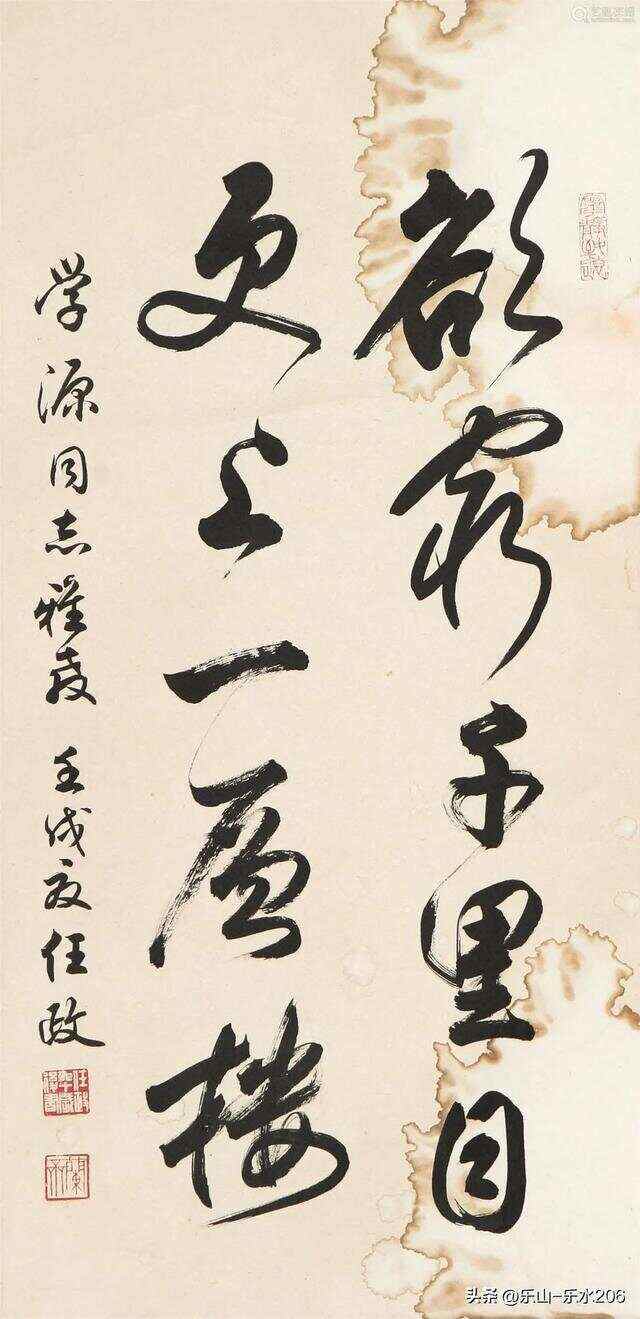 欲窮千里目
更上一層樓
学源同志雅教 壬戌夏任政
头条@乐山-乐水206